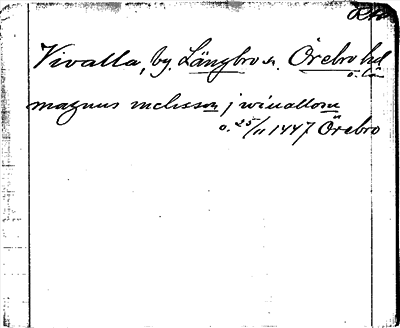 RA
Vivalla, by. Längbro sn. Örebro hd
o. län
magnus nielsson j winallom
o. 25/11 1447 Örebro